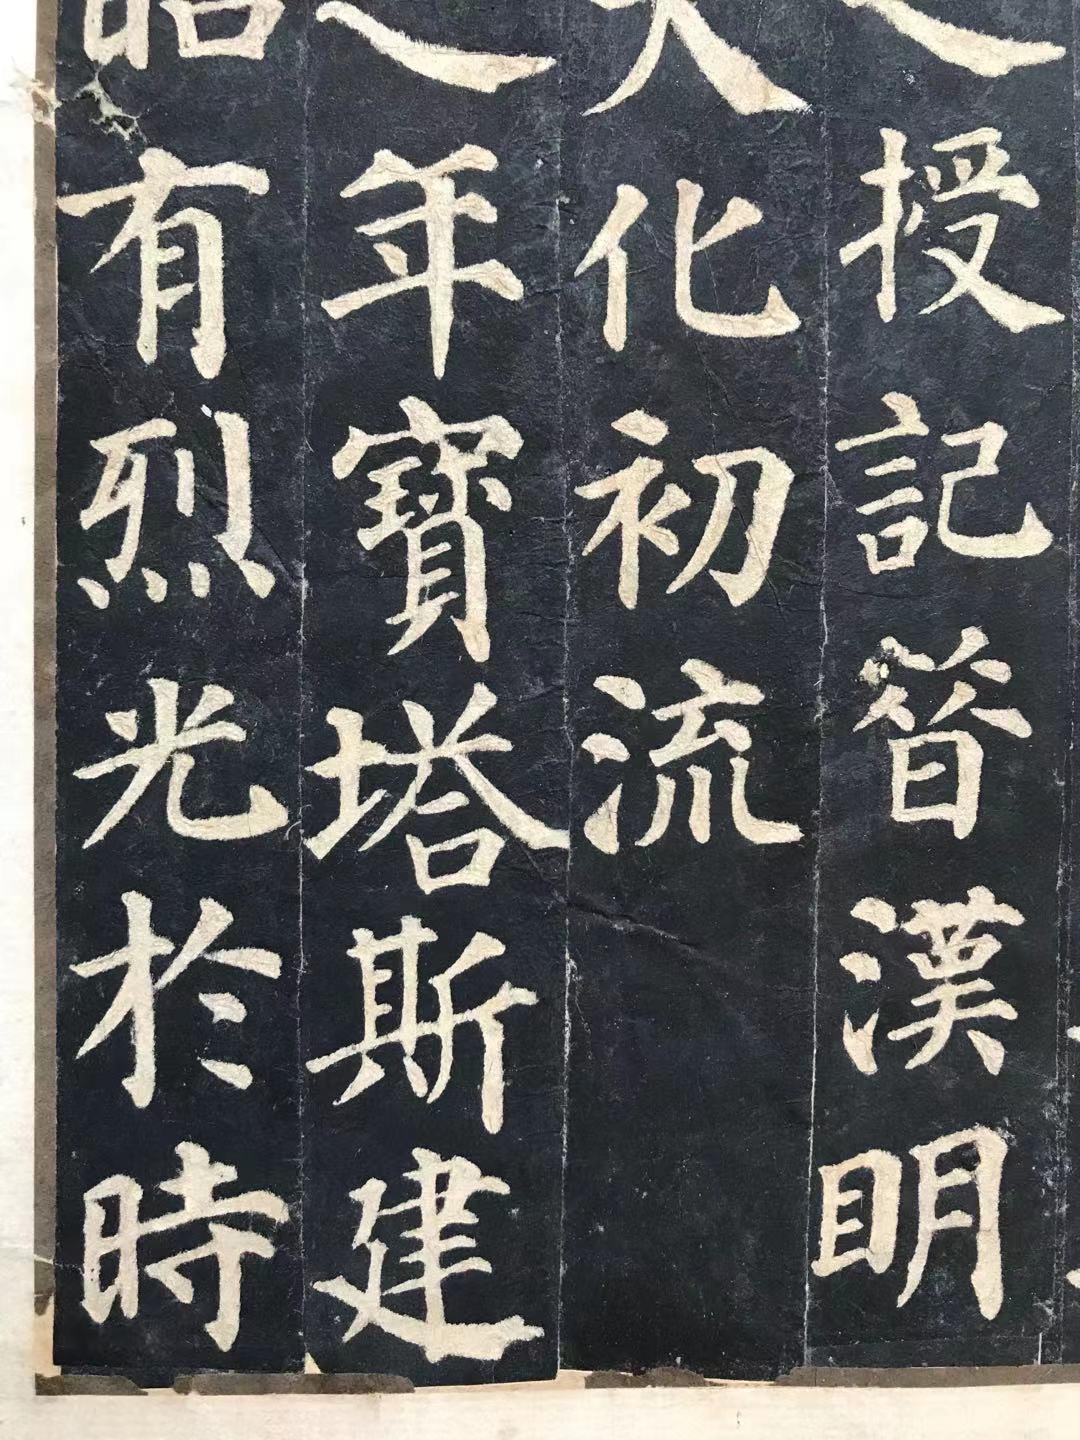 授記㫺漢明
大化初流
之年寶塔斯建
昭有烈光於時